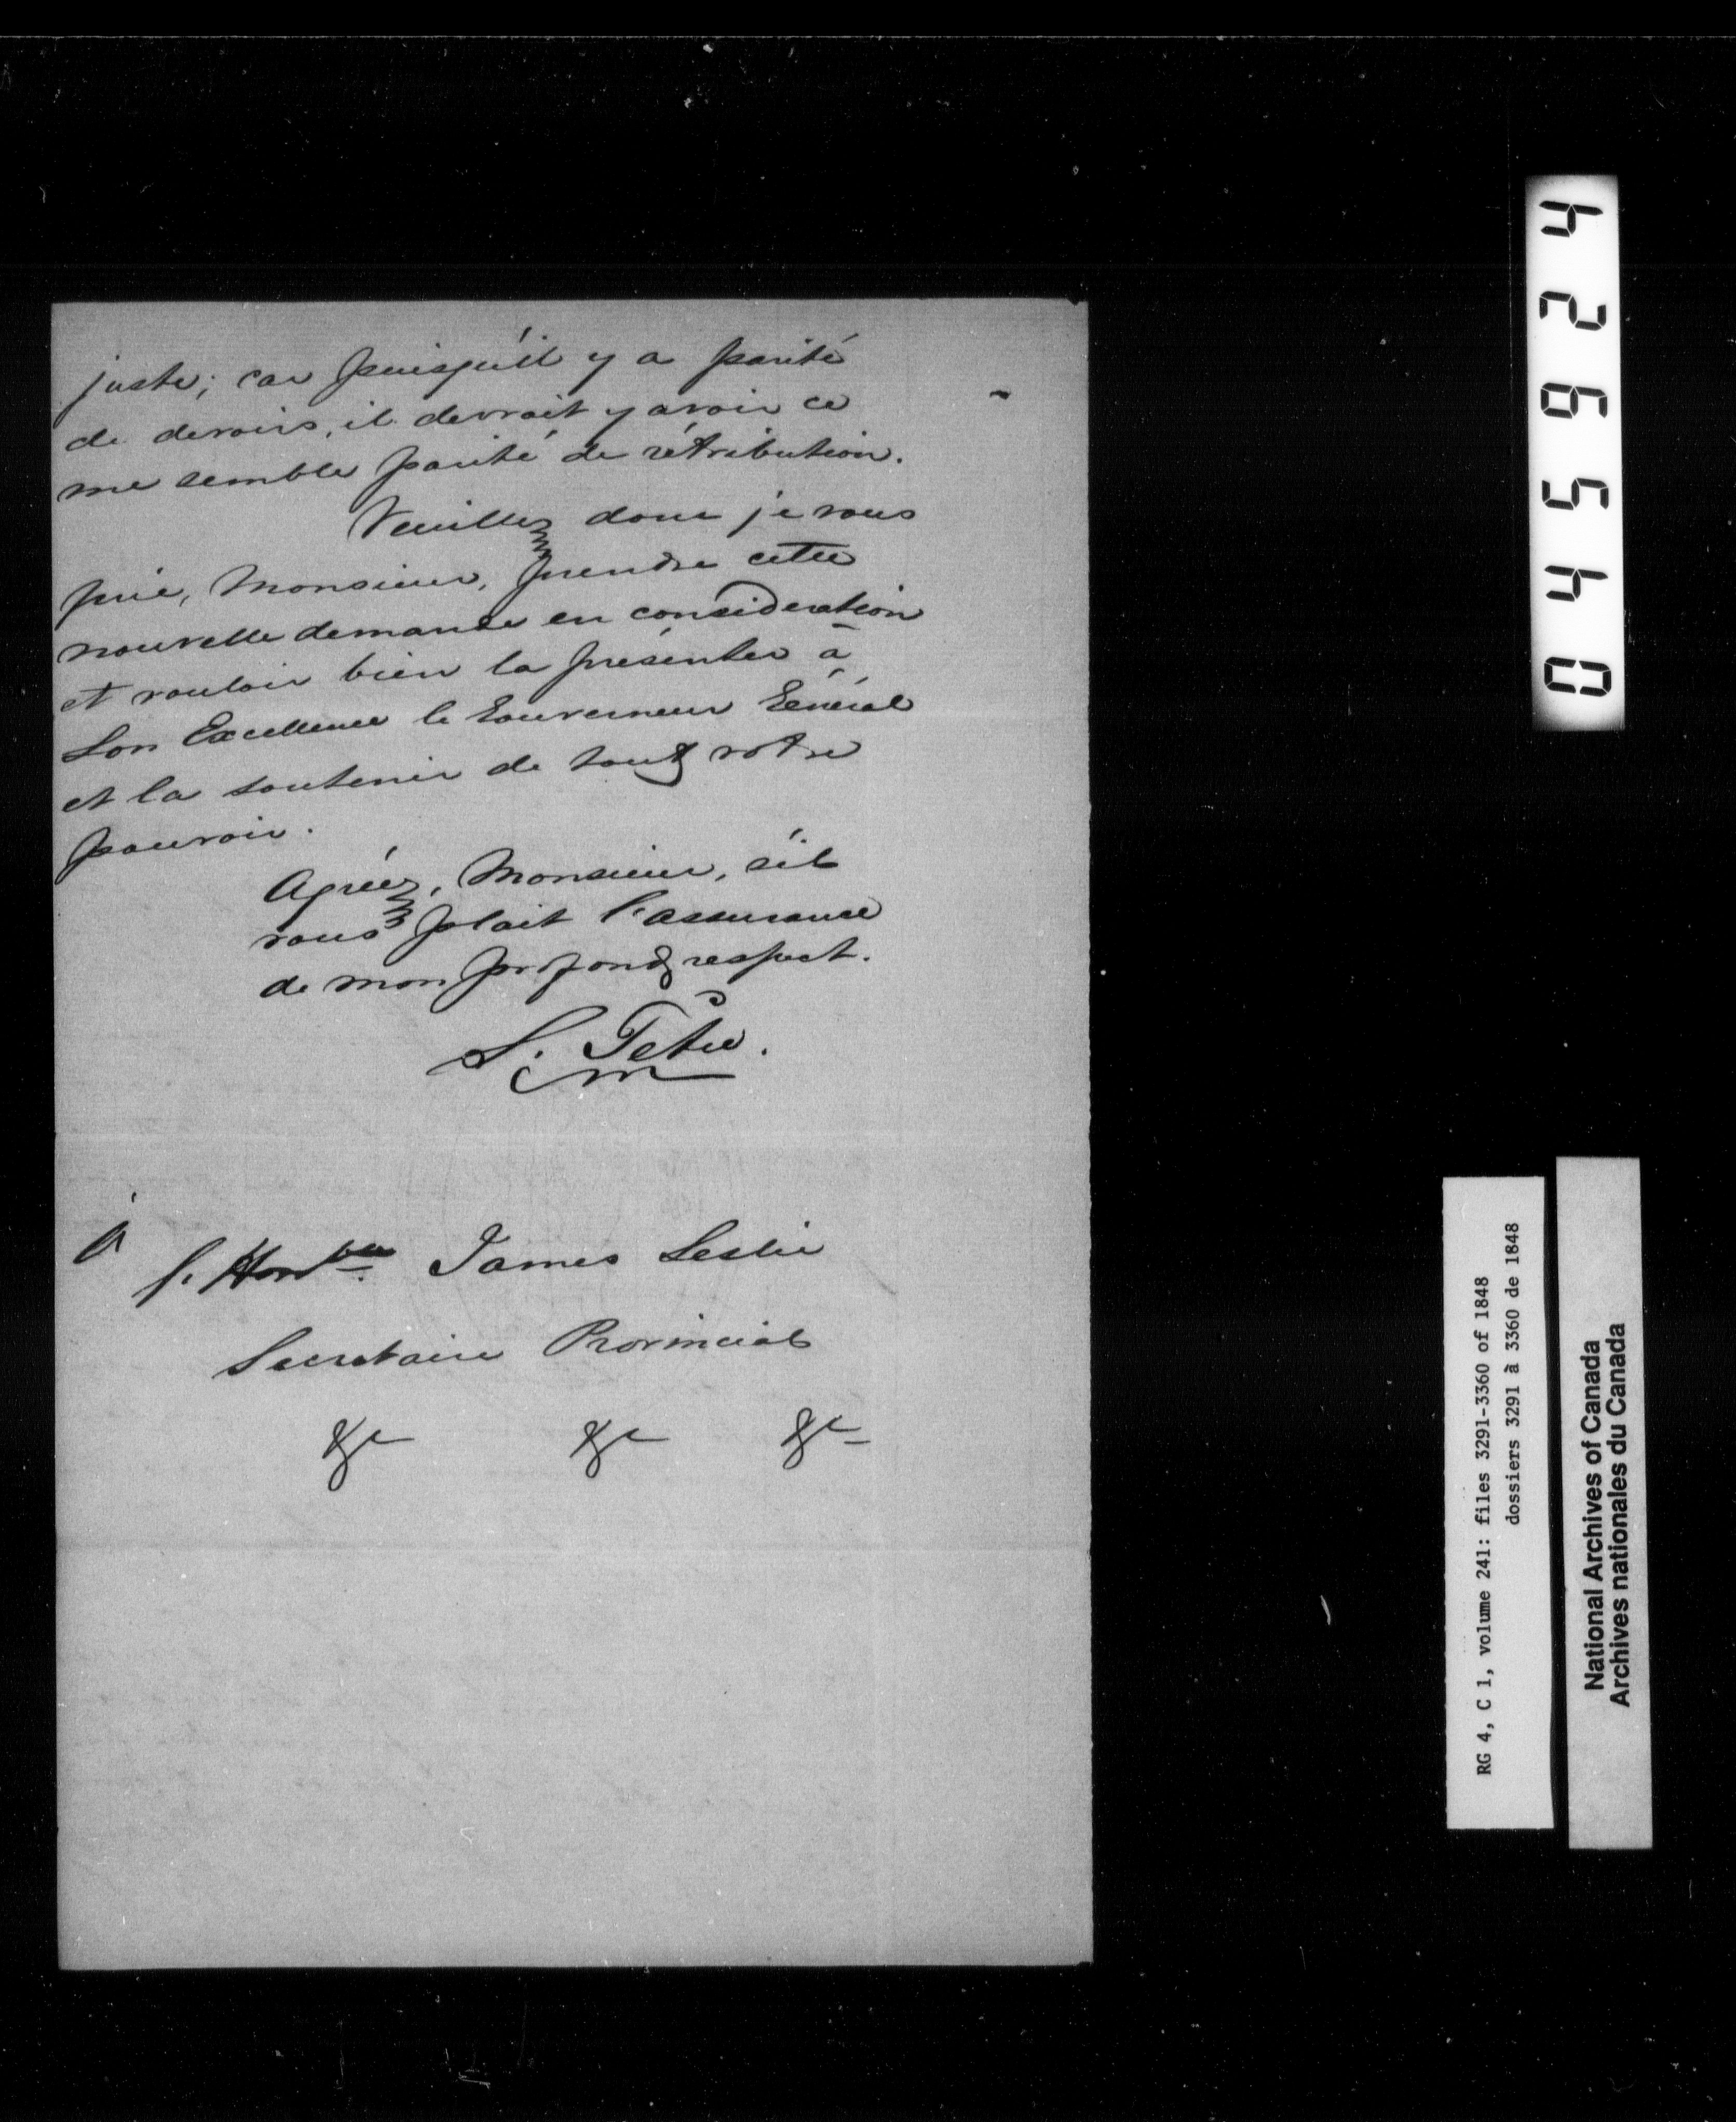 juste; car puisqu'il y a parité
de devoirs, il devrait y avoir ce
me semble parité de rétribution.
Veuillez donc je vous
prie, Monsieur, prendre cette
nouvelle demande en considération
et vouloir bien la présenter à
Son Excellence le Gouverneur Général
et la soutenir de tout votre
pouvoir.
Agréez, Monsieur, s'il
vous plait l'assurance
de mon profond respect.
S. Têtu.
À
l'Honble. James Leslie
Secretaire Provincial
&c &c &c
045924
RG 4, C 1, volume 241: files 3291-3360 of 1848
dossiers 3291 à 3360 de 1848
National Archives of Canada
Archives nationales du Canada